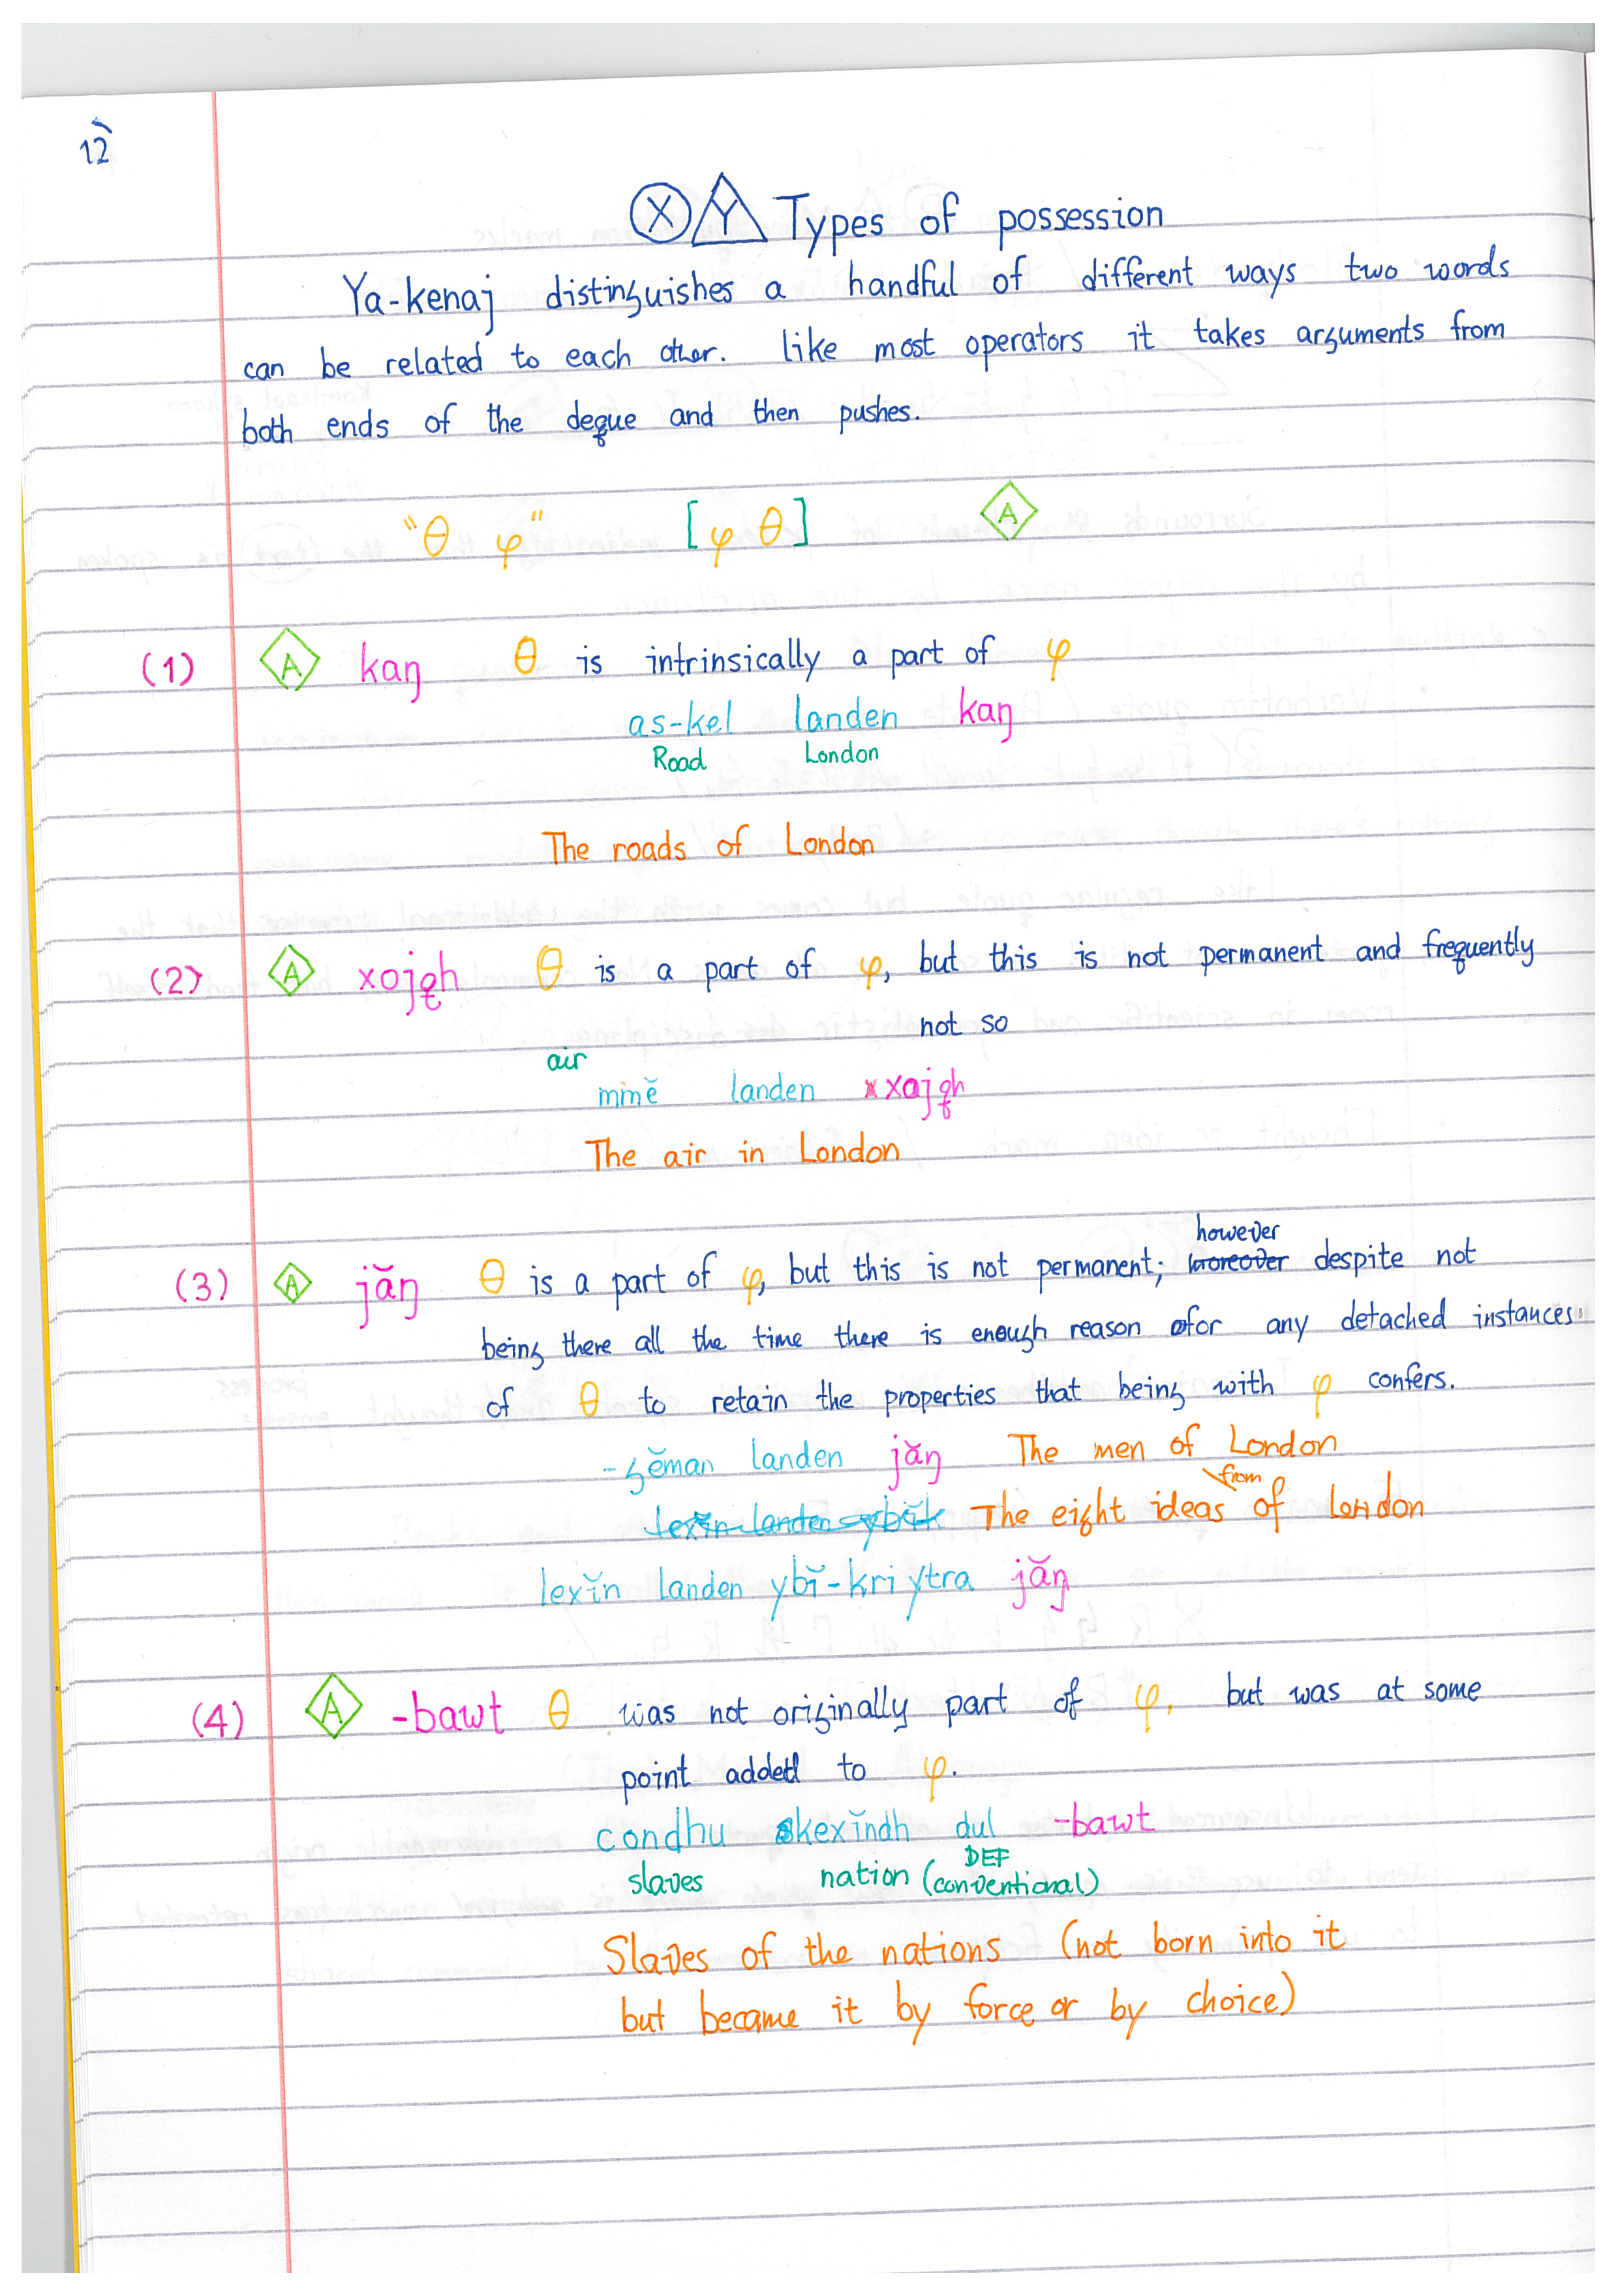 12
X Y Types of possession
Ya-kenaj distinguishes a handful of different ways two words
can be related to each other. Like most operators it takes arguments from
both ends of the deque and then pushes.
"θ φ" [φ θ] A
(1) A kaŋ θ is intrinsically a part of φ
as-kel landen kaŋ
Road London
The roads of London
(2) A xojqh θ is a part of φ, but this is not permanent and frequently
not so
air
mmĕ landen xxajqh
The air in London
however
(3) A jăŋ θ is a part of φ, but this is not permanent; moreover despite not
being there all the time there is enough reason for any detached instances
of θ to retain the properties that being with φ confers.
-gĕman landen jăŋ The men of London
from
The eight ideas of London
lexĭn landen ybĭ-kriytra jăŋ
(4) A -bawt θ was not originally part of φ, but was at some
point added to φ.
condhu skexĭndh dul -bawt
DEF
slaves nation (conventional)
Slaves of the nations (not born into it
but became it by force or by choice)